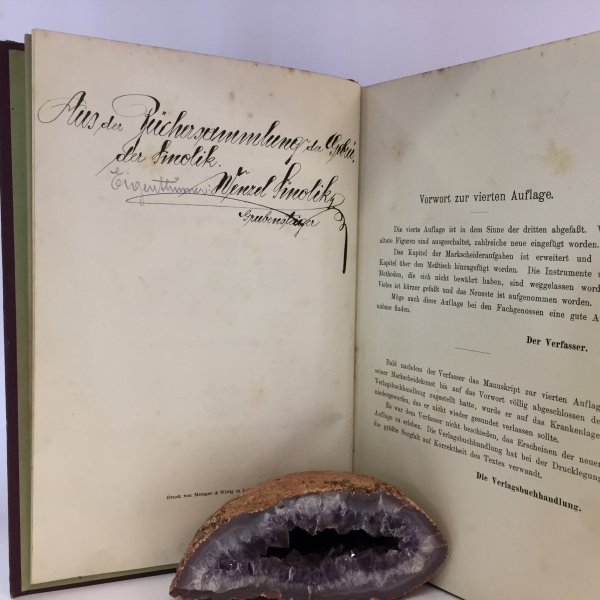 Aus der Büchersammlung der Gebrü.
der Smolik.
Eigenthümer: Wenzel Smolik
Grubensteiger
Druck von Metzger & Wittig in
Vorwort zur vierten Auflage.
Die vierte Auflage ist in dem Sinne der dritten abgefaßt. V
altete Figuren sind ausgeschaltet, zahlreiche neue eingefügt worden.
Das Kapitel der Markscheideraufgaben ist erweitert und
Kapitel über den Meßtisch hinzugefügt worden. Die Instrumente u
Methoden, die sich nicht bewährt haben, sind weggelassen word
Vieles ist kürzer gefaßt und das Neueste ist aufgenommen worden.
Möge auch diese Auflage bei den Fachgenossen eine gute A
nahme finden.
Der Verfasser.
Bald nachdem der Verfasser das Manuskript zur vierten Auflag
seiner Markscheidekunst bis auf das Vorwort völlig abgeschlossen de
Verlagsbuchhandlung zugestellt hatte, wurde er auf das Krankenlage
niedergeworfen, das er nicht wieder gesundet verlassen sollte.
Es war dem Verfasser nicht beschieden, das Erscheinen der neuen
Auflage zu erleben. Die Verlagsbuchhandlung hat bei der Drucklegung
die größte Sorgfalt auf Korrektheit des Textes verwandt.
Die Verlagsbuchhandlung.